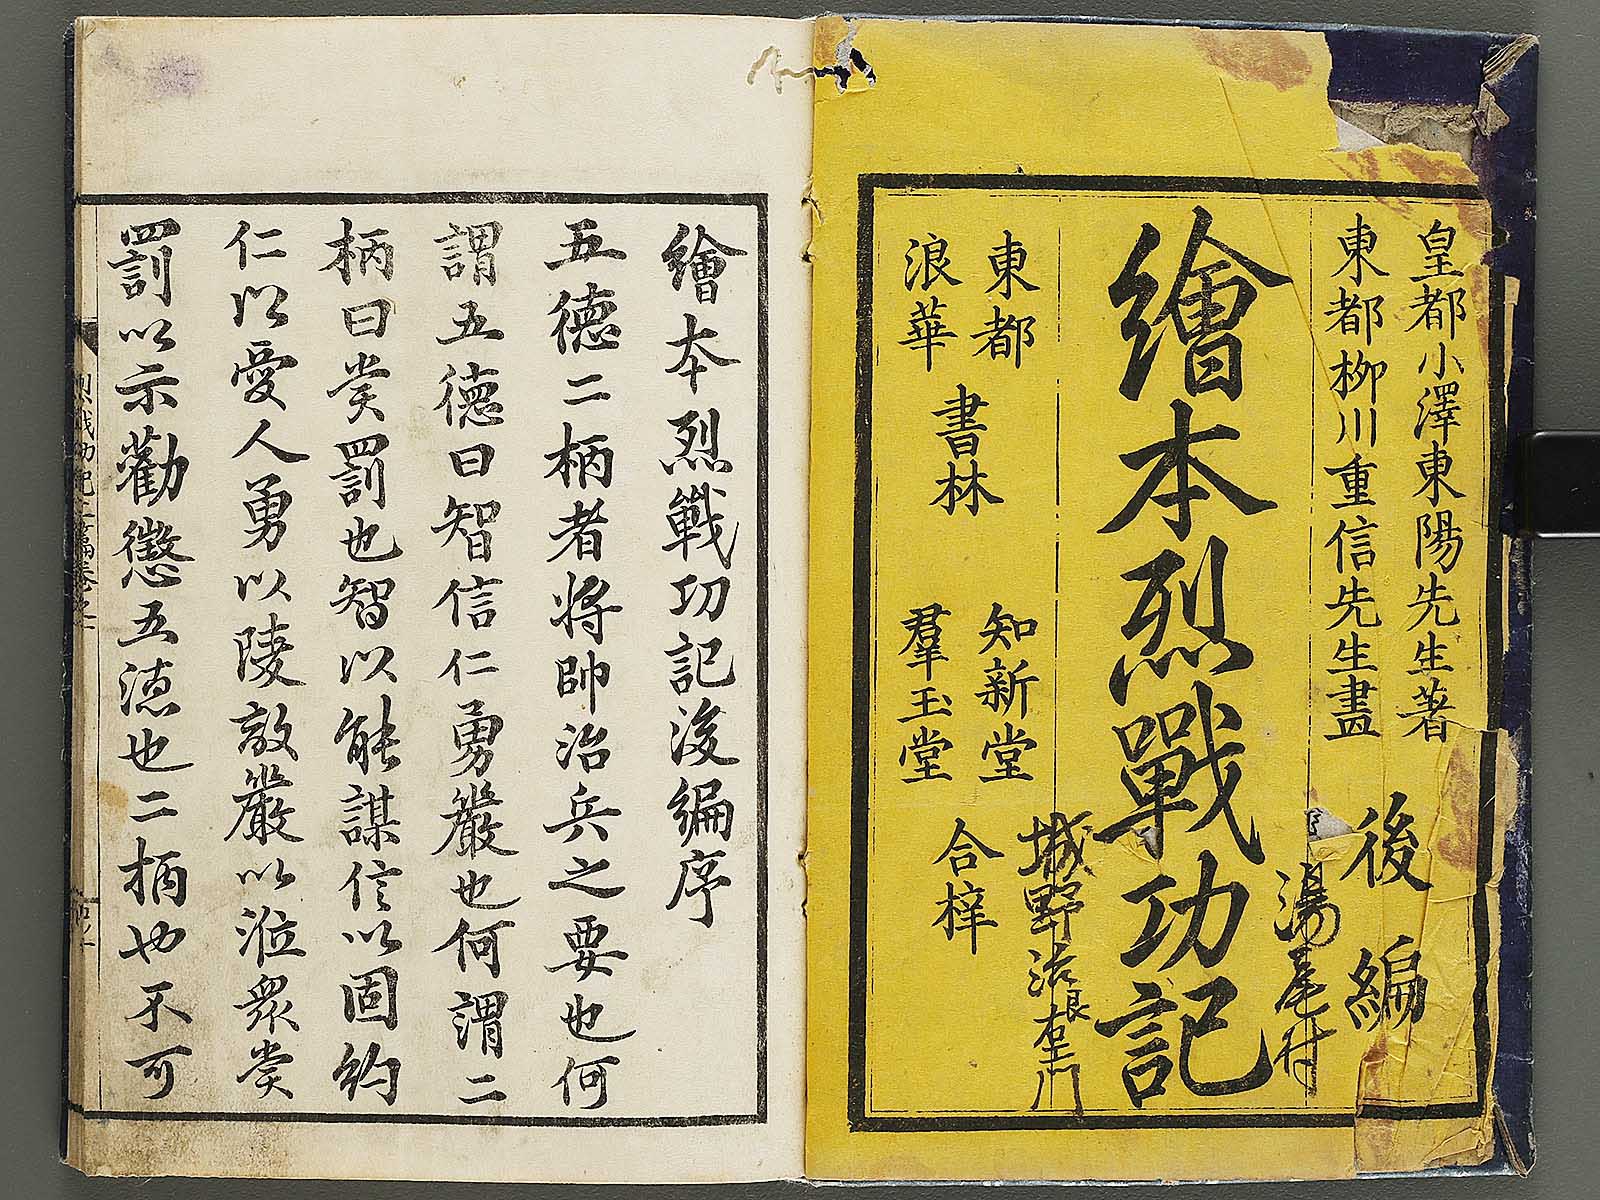 皇都小澤東陽先生著
東都栁川重信先生畫
後編
繪本烈戰功記
東都
浪華
書林
知新堂
羣玉堂
合梓
湯尾村
繪本烈戰功記後編序
五德二柄者將帥治兵之要也何
謂五德曰智信仁勇嚴也何謂二
柄曰賞罰也智以能謀信以固約
仁以愛人勇以陵敵嚴以涖衆賞
罰以示勸懲五德也二柄也不可